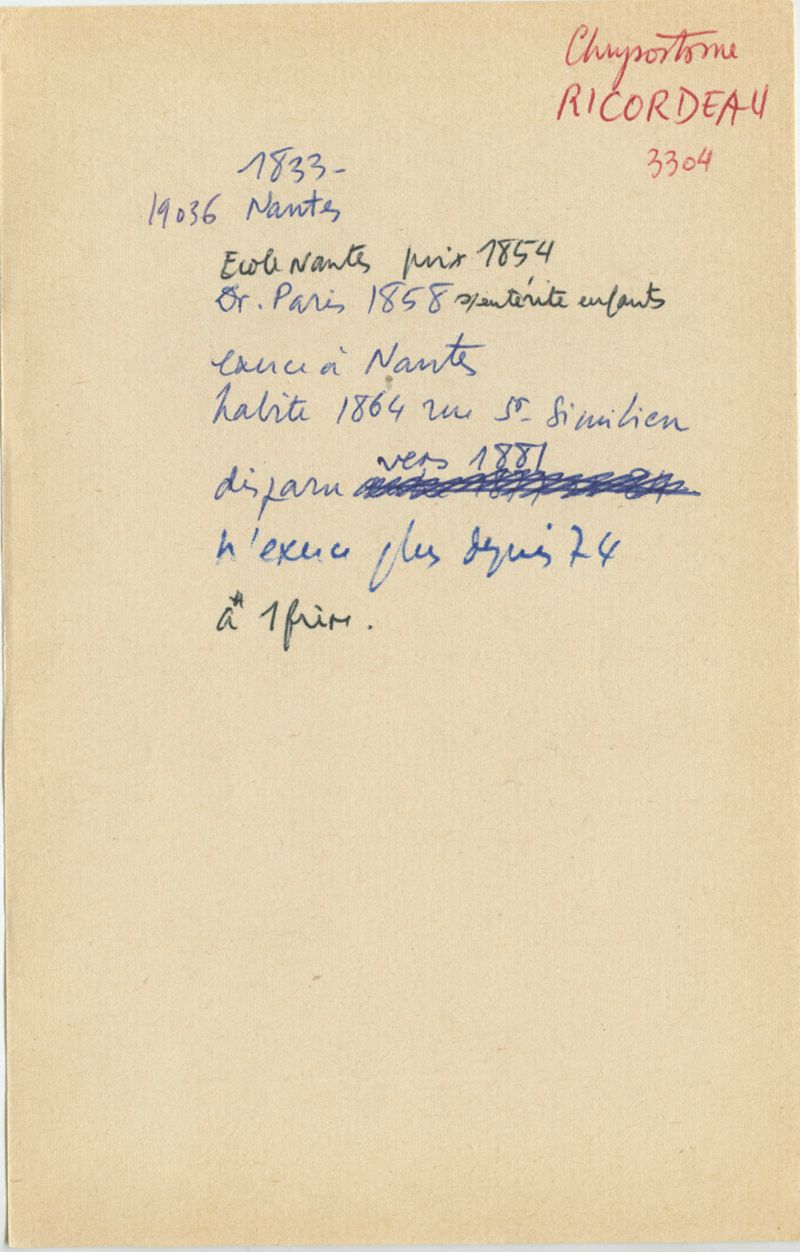 Chrysostome
RICORDEAU
3304
1833-
19036 Nantes
Ecole Nantes prix 1854
Dr. Paris 1858 s/entérite enfants
exerce à Nantes
habite 1864 rue St- Similien
vers 1881
disparu
n'exerce plus depuis 74
a 1 frère.